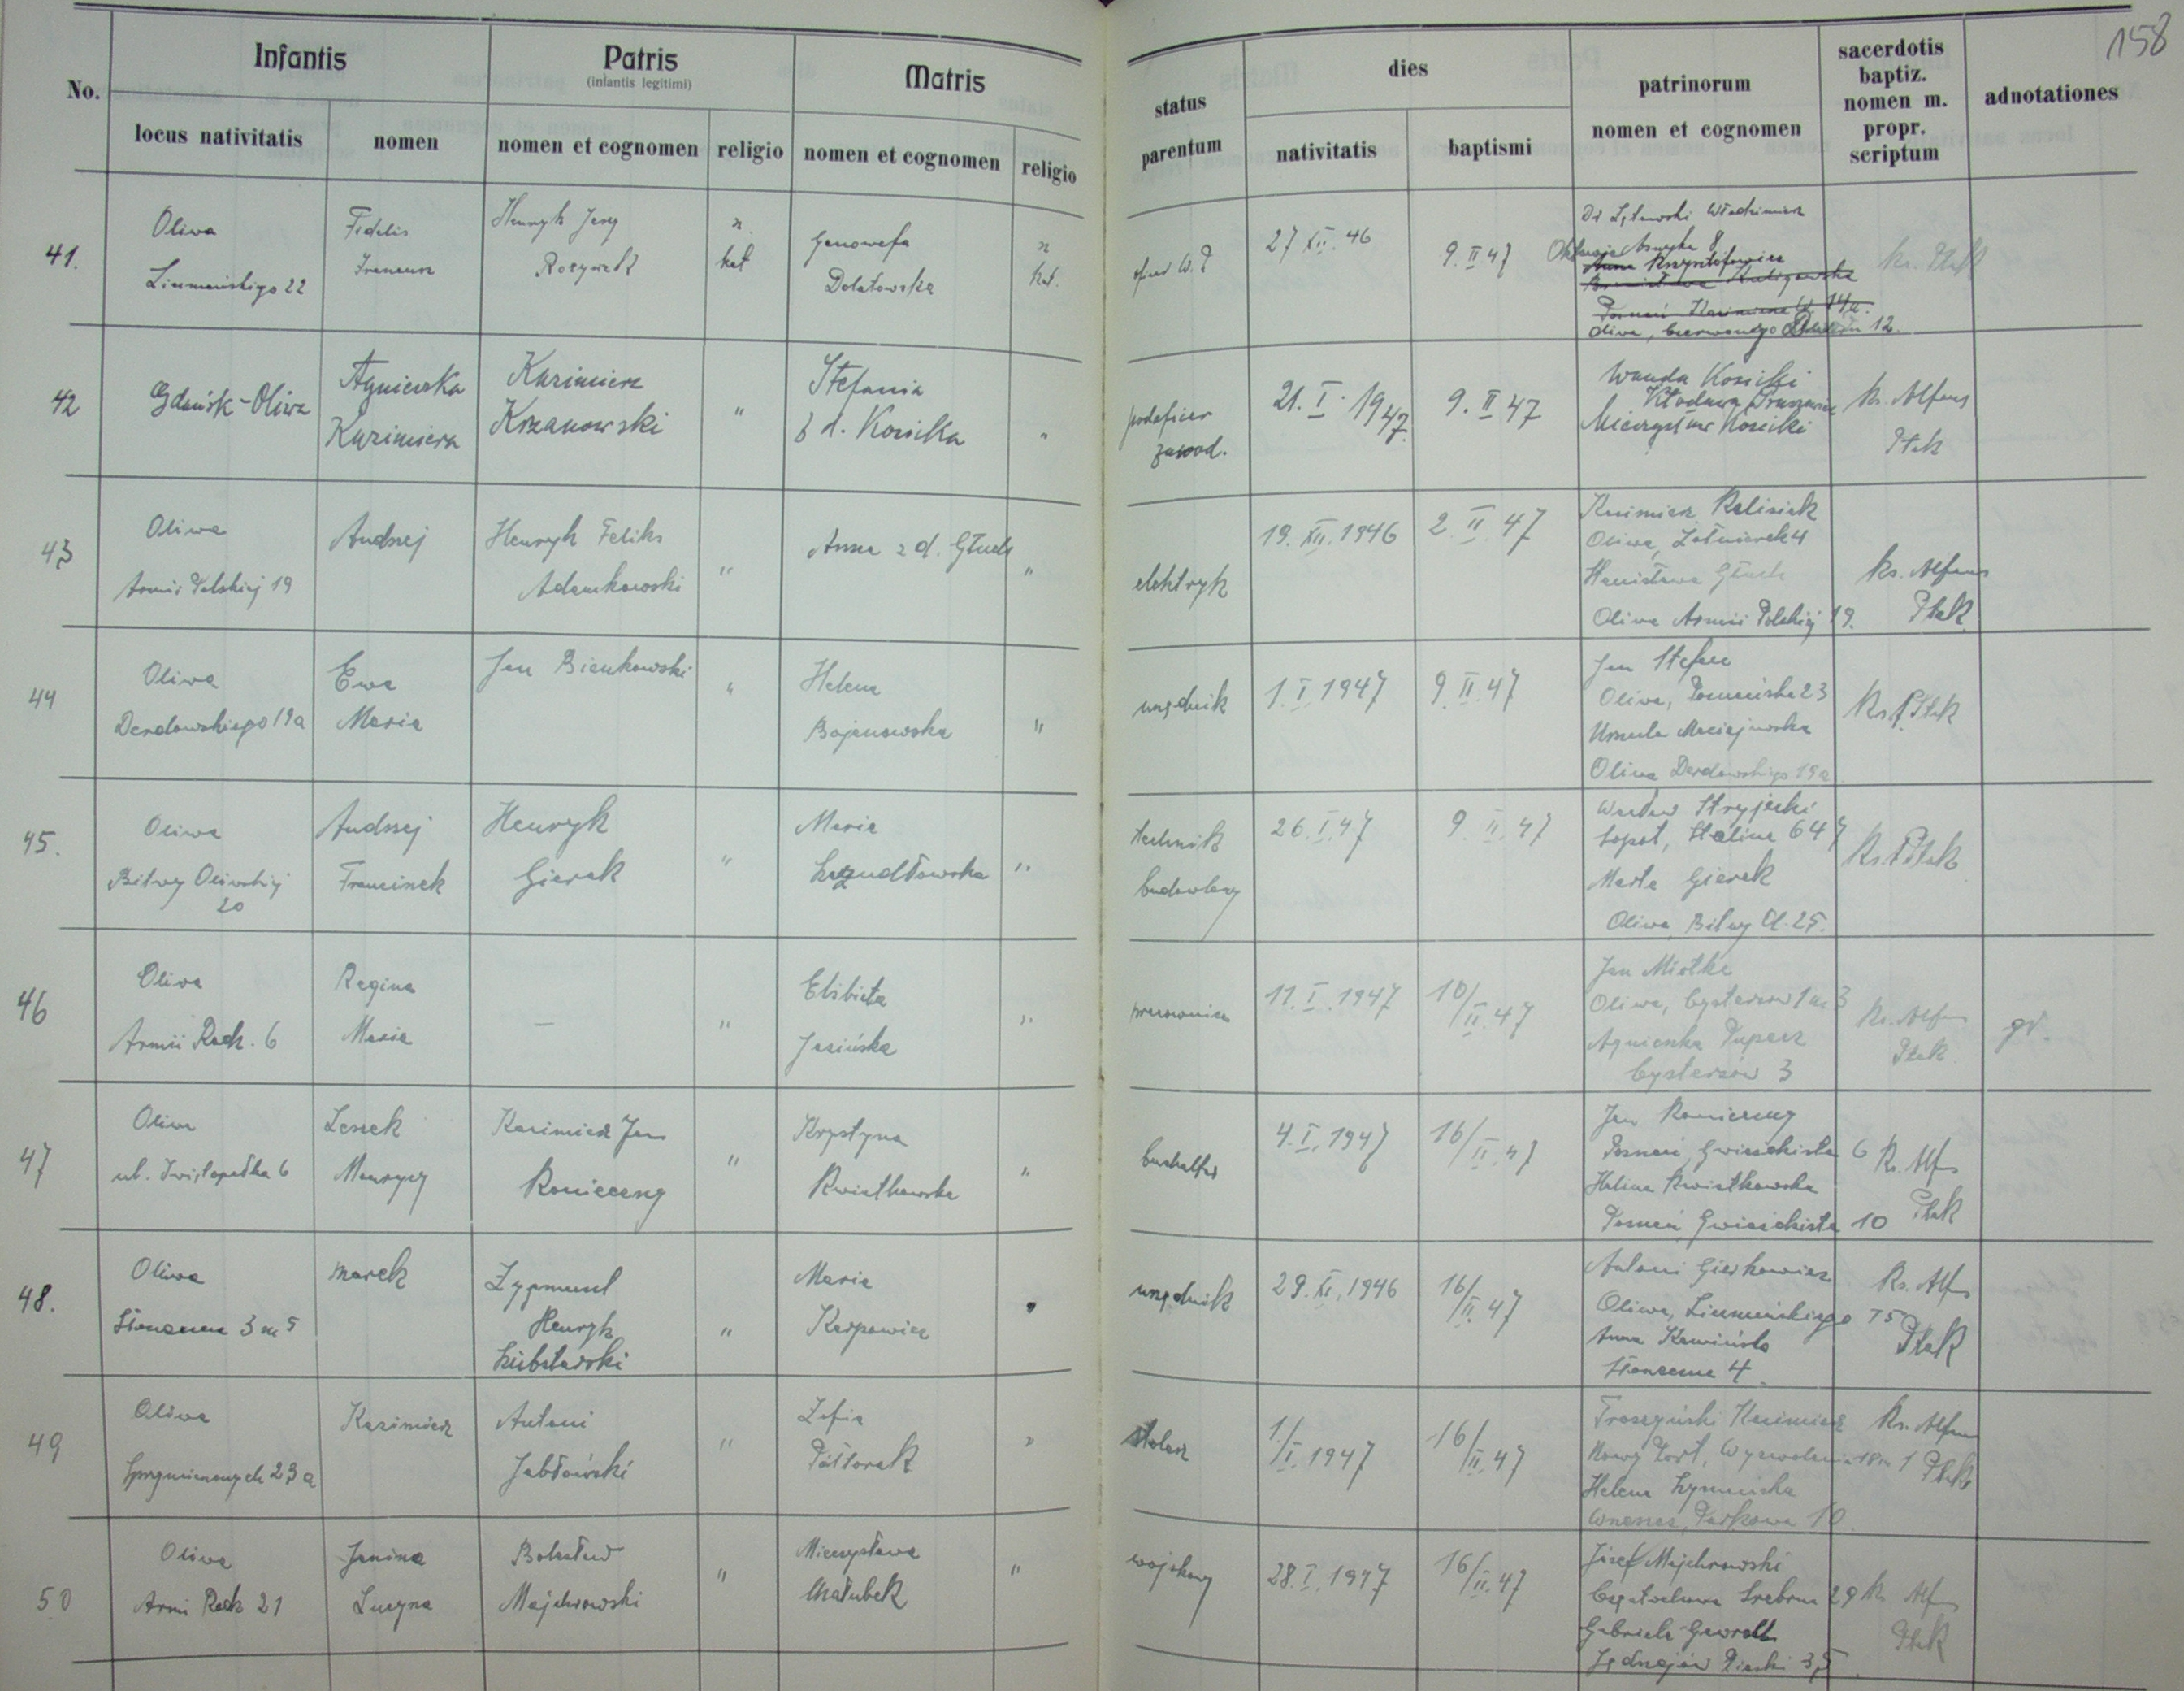 158
No.
Infantis
Patris
(infantis legitimi)
Matris
status
parentum
dies
patrinorum
nomen et cognomen
sacerdotis
baptiz.
nomen m.
propr.
scriptum
adnotationes
locus nativitatis
nomen
nomen et cognomen
religio
nomen et cognomen
religio
nativitatis
baptismi
41.
Oliwa
22
Fidelis
Ireneusz
Henryk Jerzy
kat
Genowefa
Dolatowska
kat.
W.P
27 XII. 46
9. II 47
Dr Włodzimierz
8
Anna Krzysztofowicz
14a.
Oliwa, 12.
ks. Ptak
42
Gdańsk-Oliwa
Agnieszka
Kazimiera
Kazimierz
Kozanowski
"
Stefania
z d. Kosicka
"
podoficer
zawod.
21. I. 1947.
9. II 47
Wanda Kosicki
Kłodawa
Mieczysław Kosicki
ks. Alfons
Ptak
43
Oliwa
Armii Polskiej 19
Andrzej
Henryk Feliks
Adamkowski
"
Anna z d. Głuch
"
elektryk
19. XII. 1946
2. II 47
Kazimierz Kalisiak
Oliwa, 4
Stanisława Głuch
Oliwa Armii Polskiej 19.
ks. Alfons
Ptak
44
Oliwa
Derdowskiego 19a
Ewa
Maria
Jan Bienkowski
"
Helena
Bojanowska
"
urzędnik
1. I. 1947
9. II. 47
Jan
Oliwa, Poznańska 23
Urszula Maciejewska
Oliwa Derdowskiego 19a
Ks. Ptak
45.
Oliwa
Bitwy Oliwskiej
20
Andrzej
Franciszek
Henryk
Gierak
"
Maria
"
technik
budowlany
26. I. 47
9. II. 47
Wacław Stryjecki
Sopot, Stalina 647
Marta Gierek
Oliwa, Bitwy Ol. 25.
Ks. Ptak
46
Oliwa
Armii Radz. 6
Regina
Maria
—
"
Elżbieta
Jasińska
"
pracownica
11. I. 1947
10/II. 47
Jan Miotke
Oliwa, Cystersów 1 m 3
Agnieszka
Cystersów 3
Ks. Alfons
Ptak
47
Oliwa
ul. Świętopełka 6
Leszek
Maurycy
Kazimierz Jan
Konieczny
"
Krystyna
Kwiatkowska
"
buchalter
4. I. 1947
16/II. 47
Jan Konieczny
Poznań, 6
Halina Kwiatkowska
Poznań, 10
Ks. Alfons
Ptak
48.
Oliwa
Słoneczna 3 m 5
Marek
Zygmunt
Henryk
"
Maria
Karpowicz
urzędnik
29. XI. 1946
16/II. 47
Antoni Gierkowicz
Oliwa, 75
Anna
Słoneczna 4.
Ks. Alfons
Ptak
49
Oliwa
23a
Kazimierz
Antoni
Jabłoński
"
Zofia
Półtorak
"
stolarz
1/I. 1947
16/II. 47
Kazimierz
Nowy Port, Wyzwolenia 18 m 1
Helena
Wrzeszcz, Parkowa 10
Ks. Alfons
Ptak
50
Oliwa
Armi Radz 21
Janina
Lucyna
Bolesław
Majchrowski
"
Mieczysława
Chałubek
"
wojskowy
28. I. 1947
16/II. 47
Józef Majchrowski
Częstochowa Srebrna 29
Gabriela
Jędrzejów Piaski 3,5
ks. Alfons
Ptak